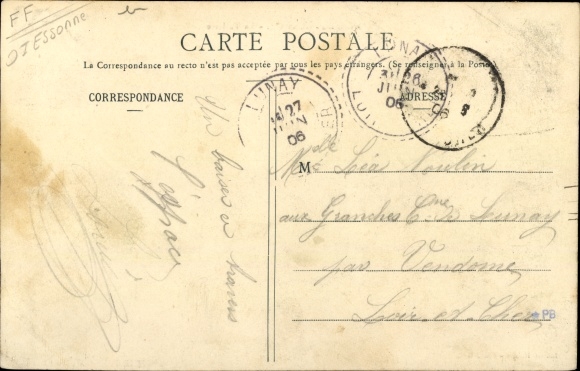 FF
91 Essonne
CARTE POSTALE
La Correspondance au recto n'est pas acceptée par tous les pays étrangers. (Se renseigner à la Poste)
CORRESPONDANCE
ADRESSE
LUNAY
27
JUIN
06
LUNAY
26
JUIN
06
LOIR
Un baiser à travers
l'espace
M
elle Léa Moulin
aux Granches Cne de Lunay
par Vendome
Loir-et-Cher
PB